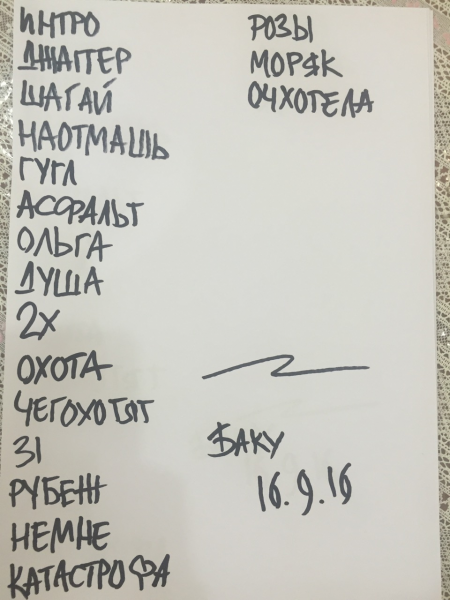 ИНТРО
ДЖАГГЕР
ШАГАЙ
НАОТМАШЬ
ГУГЛ
АСФАЛЬТ
ОЛЬГА
ДУША
2Х
ОХОТА
ЧЕГОХОТЯТ
31
РУБЕЖ
НЕМНЕ
КАТАСТРОФА
РОЗЫ
МОРЯК
ОЧХОТЕЛА
БАКУ
16.9.16